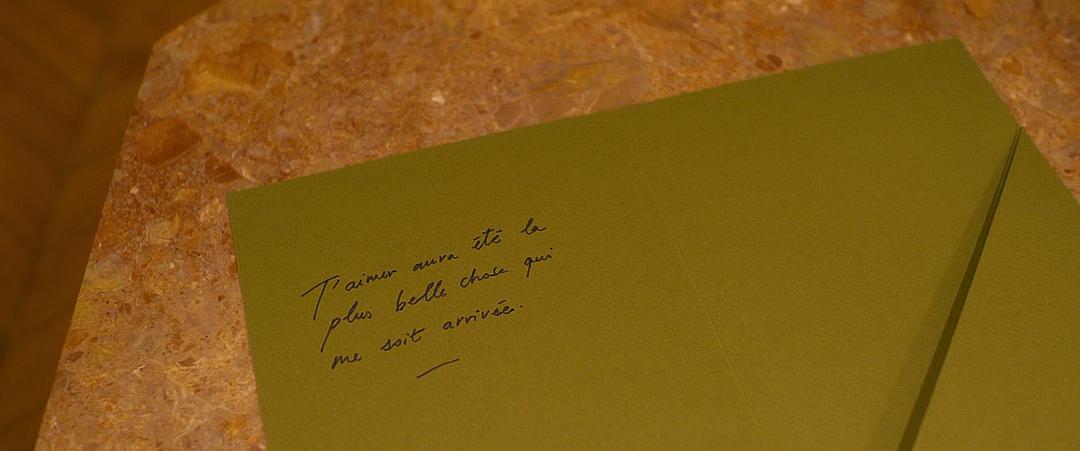 T'aimer aura été la
plus belle chose qui
me soit arrivée.